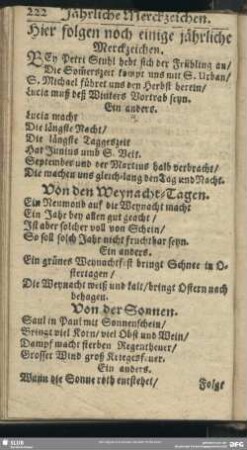 222 Jährliche Merckzeichen.
Hier folgen noch einige jährliche
Merckzeichen.
BEy Petri Stuhl hebt sich der Frühling an/
Die Som̃erszeit kompt uns mit S. Urban/
S. Michael führet uns den Herbst herein/
Lucia muß deß Winters Vortrab seyn.
Ein anders.
Lucia macht
Die längste Nacht/
Die längste Taggeszeit
Hat Junius und S. Veit.
September und der Martius halb verbracht/
Die machen uns gleich-lang den Tag und Nacht.
Von den Weynacht-Tagen.
Ein Neumond auf die Weynacht macht
Ein Jahr bey allen gut geacht/
Ist aber solcher voll von Schein/
So soll solch Jahr nicht fruchtbar seyn.
Ein anders.
Ein grünes Weynachtfest bringt Schnee in O-
stertagen/
Die Weynacht weiß und kalt/bringt Ostern nach
behagen.
Von der Sonnen.
Saul in Paul mit Sonnenschein/
Bringt viel Korn/viel Obst und Wein/
Dampf macht sterben Regentheuer/
Grosser Wind groß Kriegesfeuer.
Ein anders.
Wann die Sonne roth entstehet/
Folgt
SLUB